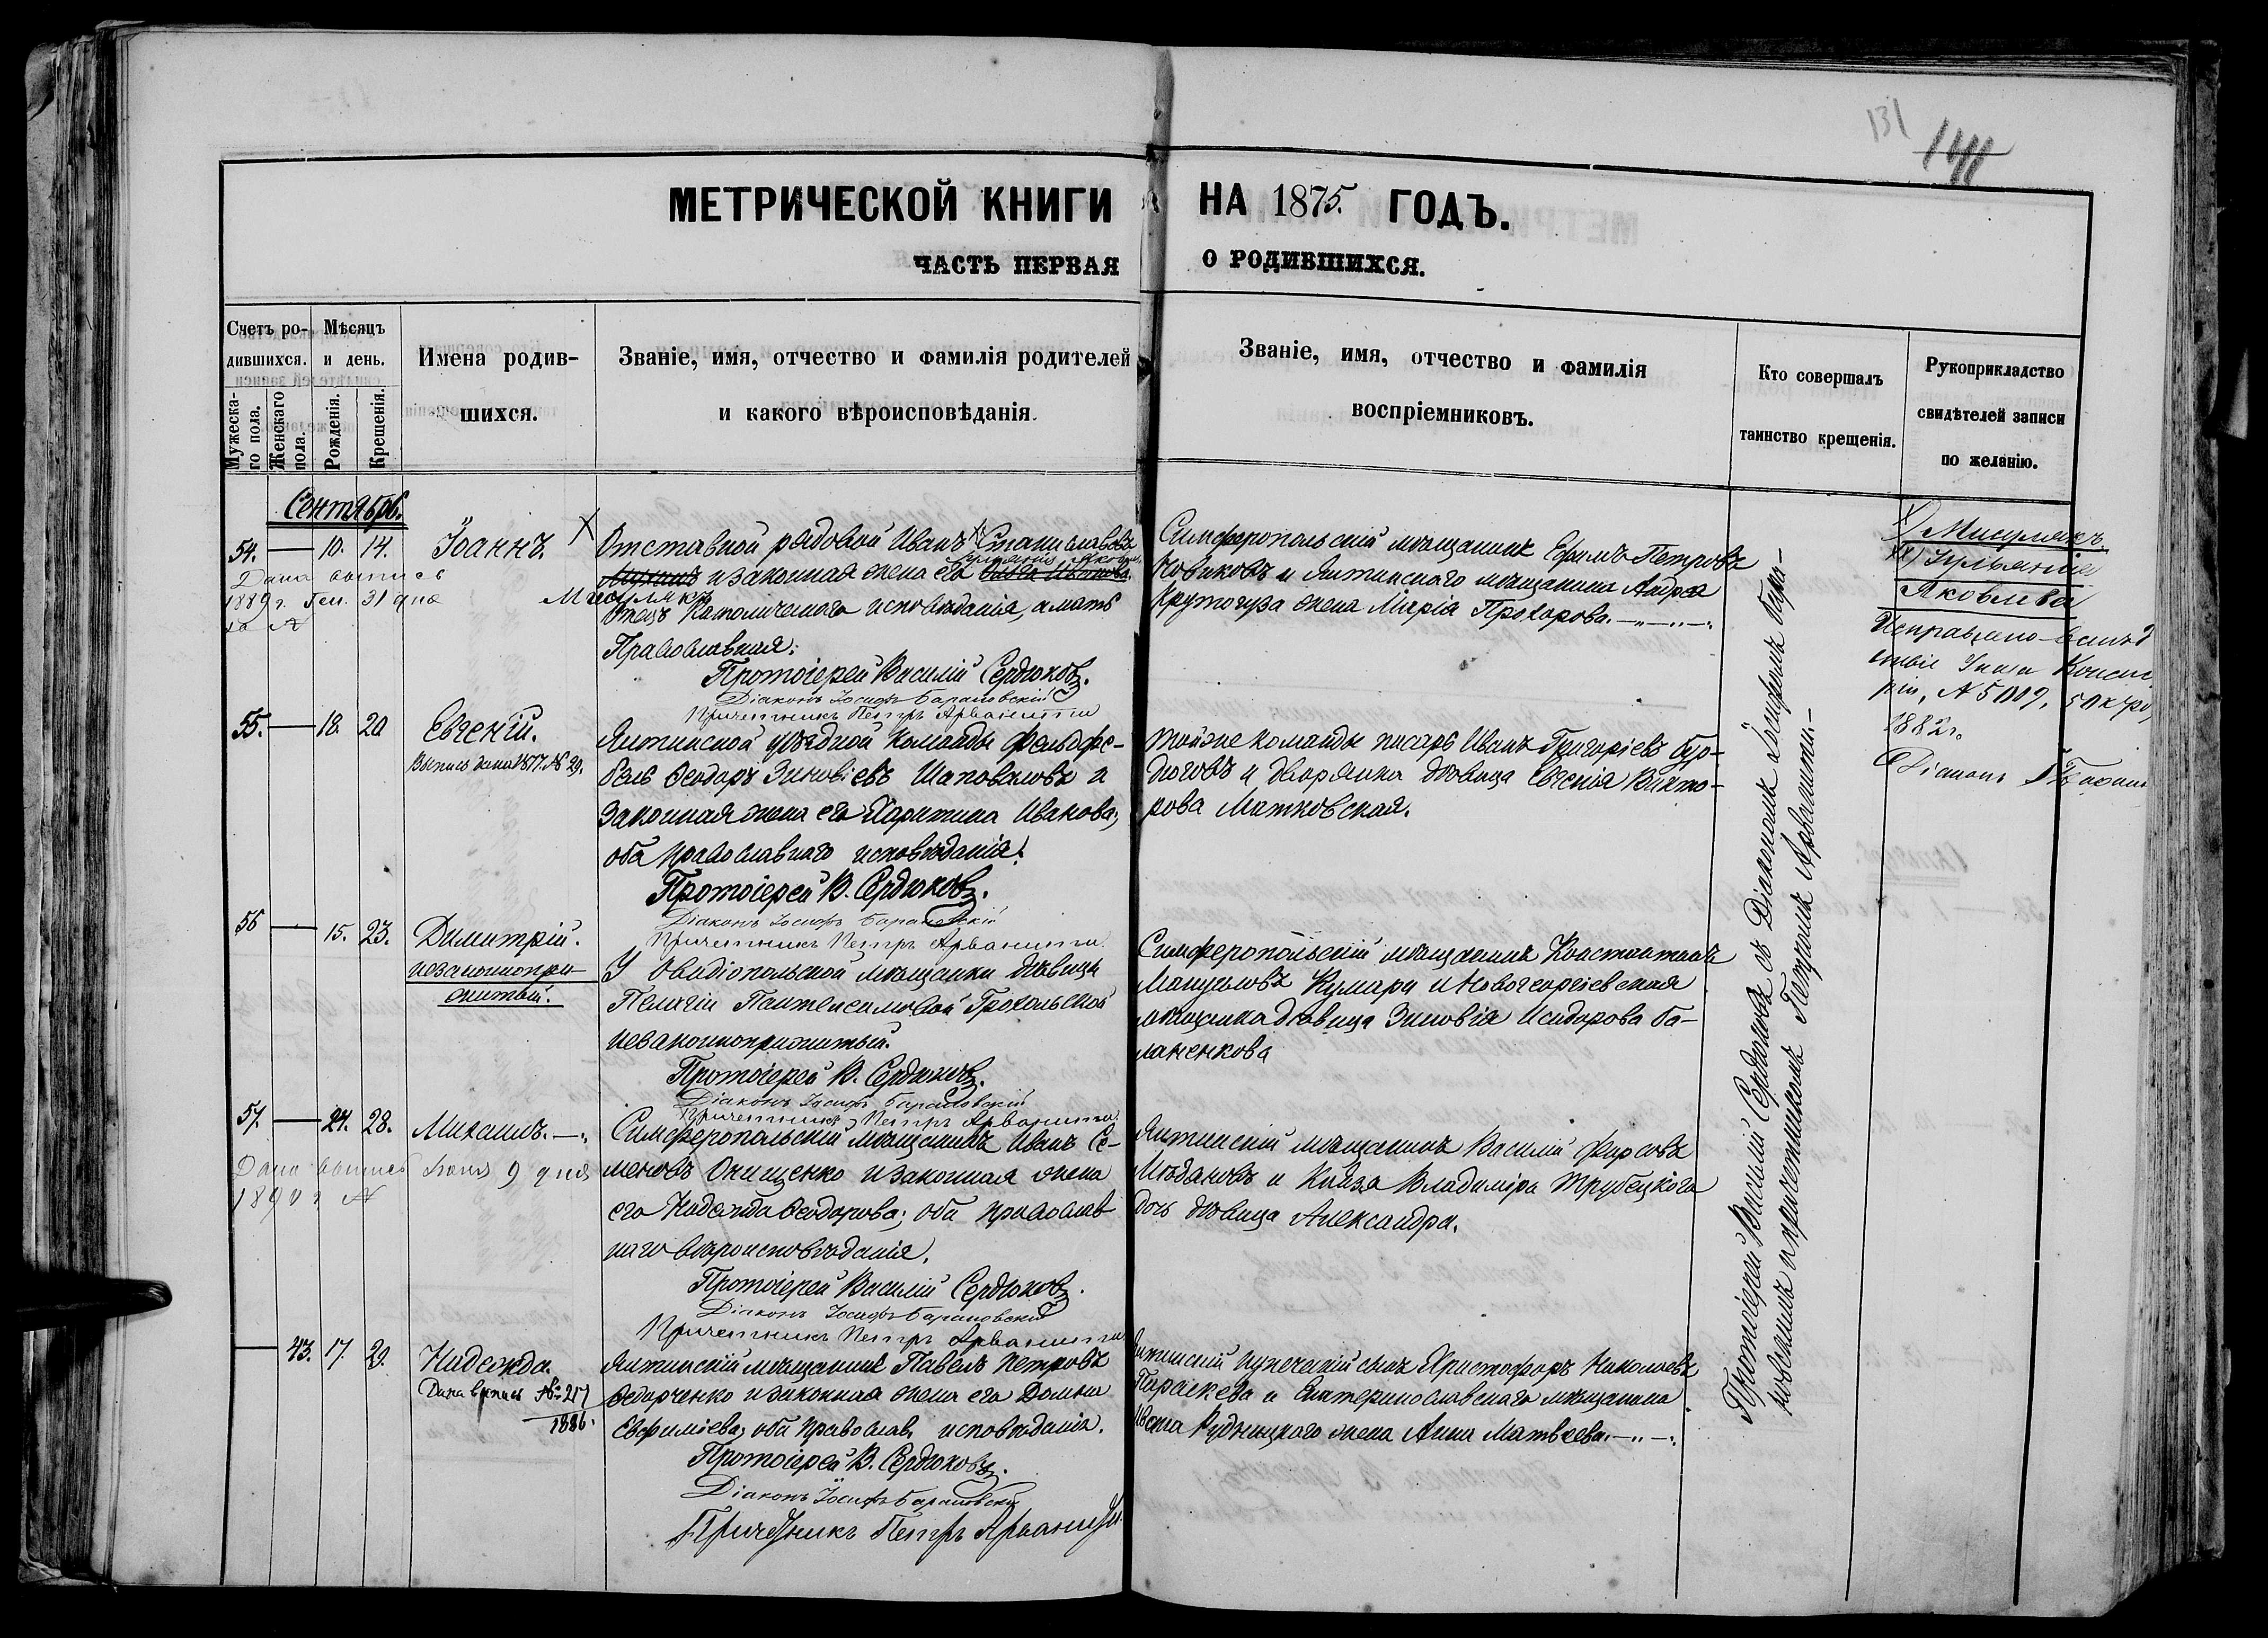 131
141
МЕТРИЧЕСКОЙ КНИГИ НА 1875. ГОДЪ.
ЧАСТЬ ПЕРВАЯ О РОДИВШИХСЯ.
Счетъ ро-
дившихся.
Мужеска-
го пола.
Женскаго
пола.
Мѣсяцъ
и день.
Рожденія.
Крещенія.
Имена родив-
шихся.
Званіе, имя, отчество и фамилія родителей
и какого вѣроисповѣданія.
Званіе, имя, отчество и фамилія
воспріемниковъ.
Кто совершалъ
таинство крещенія.
Рукоприкладство
свидѣтелей записи
по желанію.
Сентябрь.
54. — 10. 14.
Іоаннъ.
Дана выпись
1889 г. Ген. 31 дня
за №
Отставной рядовой Иванъ Станиславовъ
Іуліанія Яковл.
и законная жена его
Мисулякъ
Отецъ Католическаго исповѣданія, а мать
Православная.
Протоіерей Василій Сердюковъ.
Діаконъ Іосифъ Барановскій
Причетникъ Петръ Арванитти
Симферопольскій мѣщанинъ Ефимъ Петровъ
Новиковъ и Ялтинскаго мѣщанина Андрея
Крутогуза жена Марія Прохорова.
х) Мисулякъ
хх) Іуліанія
Яковлева
Исправлено вслѣд
ствіе Указа Консис
ріи, № 5009, 5 Окт
1882 г.
Діаконъ
55. — 18. 20
Евгеній.
Выпись дана 1877. № 29.
Ялтинской уѣздной команды фельдфе-
бель Ѳеодоръ Зиновіевъ Шаповаловъ и
законная жена его Харитина Иванова;
оба православнаго исповѣданія.
Протоіерей В. Сердюковъ.
Діаконъ Іосифъ Барановскій
Причетникъ Петръ Арванитти.
Тойже команды писарь Иванъ Григоріевъ Бур-
дюговъ и дворянка дѣвица Евгенія Викто-
рова Матковская.
56 — 15. 23.
Димитрій.
незаконнопри-
житый.
У Овидіопольской мѣщанки дѣвицы
Пелагіи Пантелеимовой Грохольской
незаконноприжитый.
Протоіерей В. Сердюковъ.
Діаконъ Іосифъ Барановскій
Причетникъ Петръ Арванитти.
Симферопольскій мѣщанинъ Константинъ
Мануиловъ Кумари и Новогеоргіевская
мѣщанка дѣвица Зиновія Исидорова Ба-
ланенкова
57. — 24. 28.
Михаилъ.
Дана выпись Іюня 9 дня
1890 г №
Симферопольскій мѣщанинъ Иванъ Се-
меновъ Онищенко и законная жена
его Надежда Ѳеодорова; оба православ
наго вѣроисповѣданія.
Протоіерей Василій Сердюковъ.
Діаконъ Іосифъ Барановскій
Причетникъ Петръ Арванитти
Ялтинскій мѣщанинъ Василій Фирсовъ
и Князя Владиміра Трубецкого
дочь дѣвица Александра.
— 43. 17. 29.
Надежда.
Дана выпись № 217
1886.
Ялтинскій мѣщанинъ Павелъ Петровъ
Ѳедорченко и законная жена его Домна
Евфиміева; оба православ. исповѣданія.
Протоіерей В. Сердюковъ.
Діаконъ Іосифъ Барановскій
Причетникъ Петръ Арванитти.
Ялтинскій купеческій сынъ Христофоръ Николаевъ
Параскева и Екатеринославскаго мѣщанина
Ивана Рудницкаго жена Анна Матвѣева.
Протоіерей Василій Сердюковъ съ Діакономъ Іосифомъ Бара-
новскимъ и причетникомъ Петромъ Арванитти.